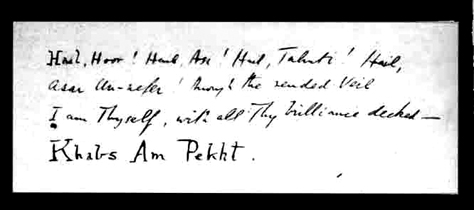 Hail, Hoor! Hail, Asi! Hail, Tahuti! Hail,
Asar Un-nefer! through the rended Veil
I am Thyself, with all Thy brilliance decked—
Khabs Am Pekht.